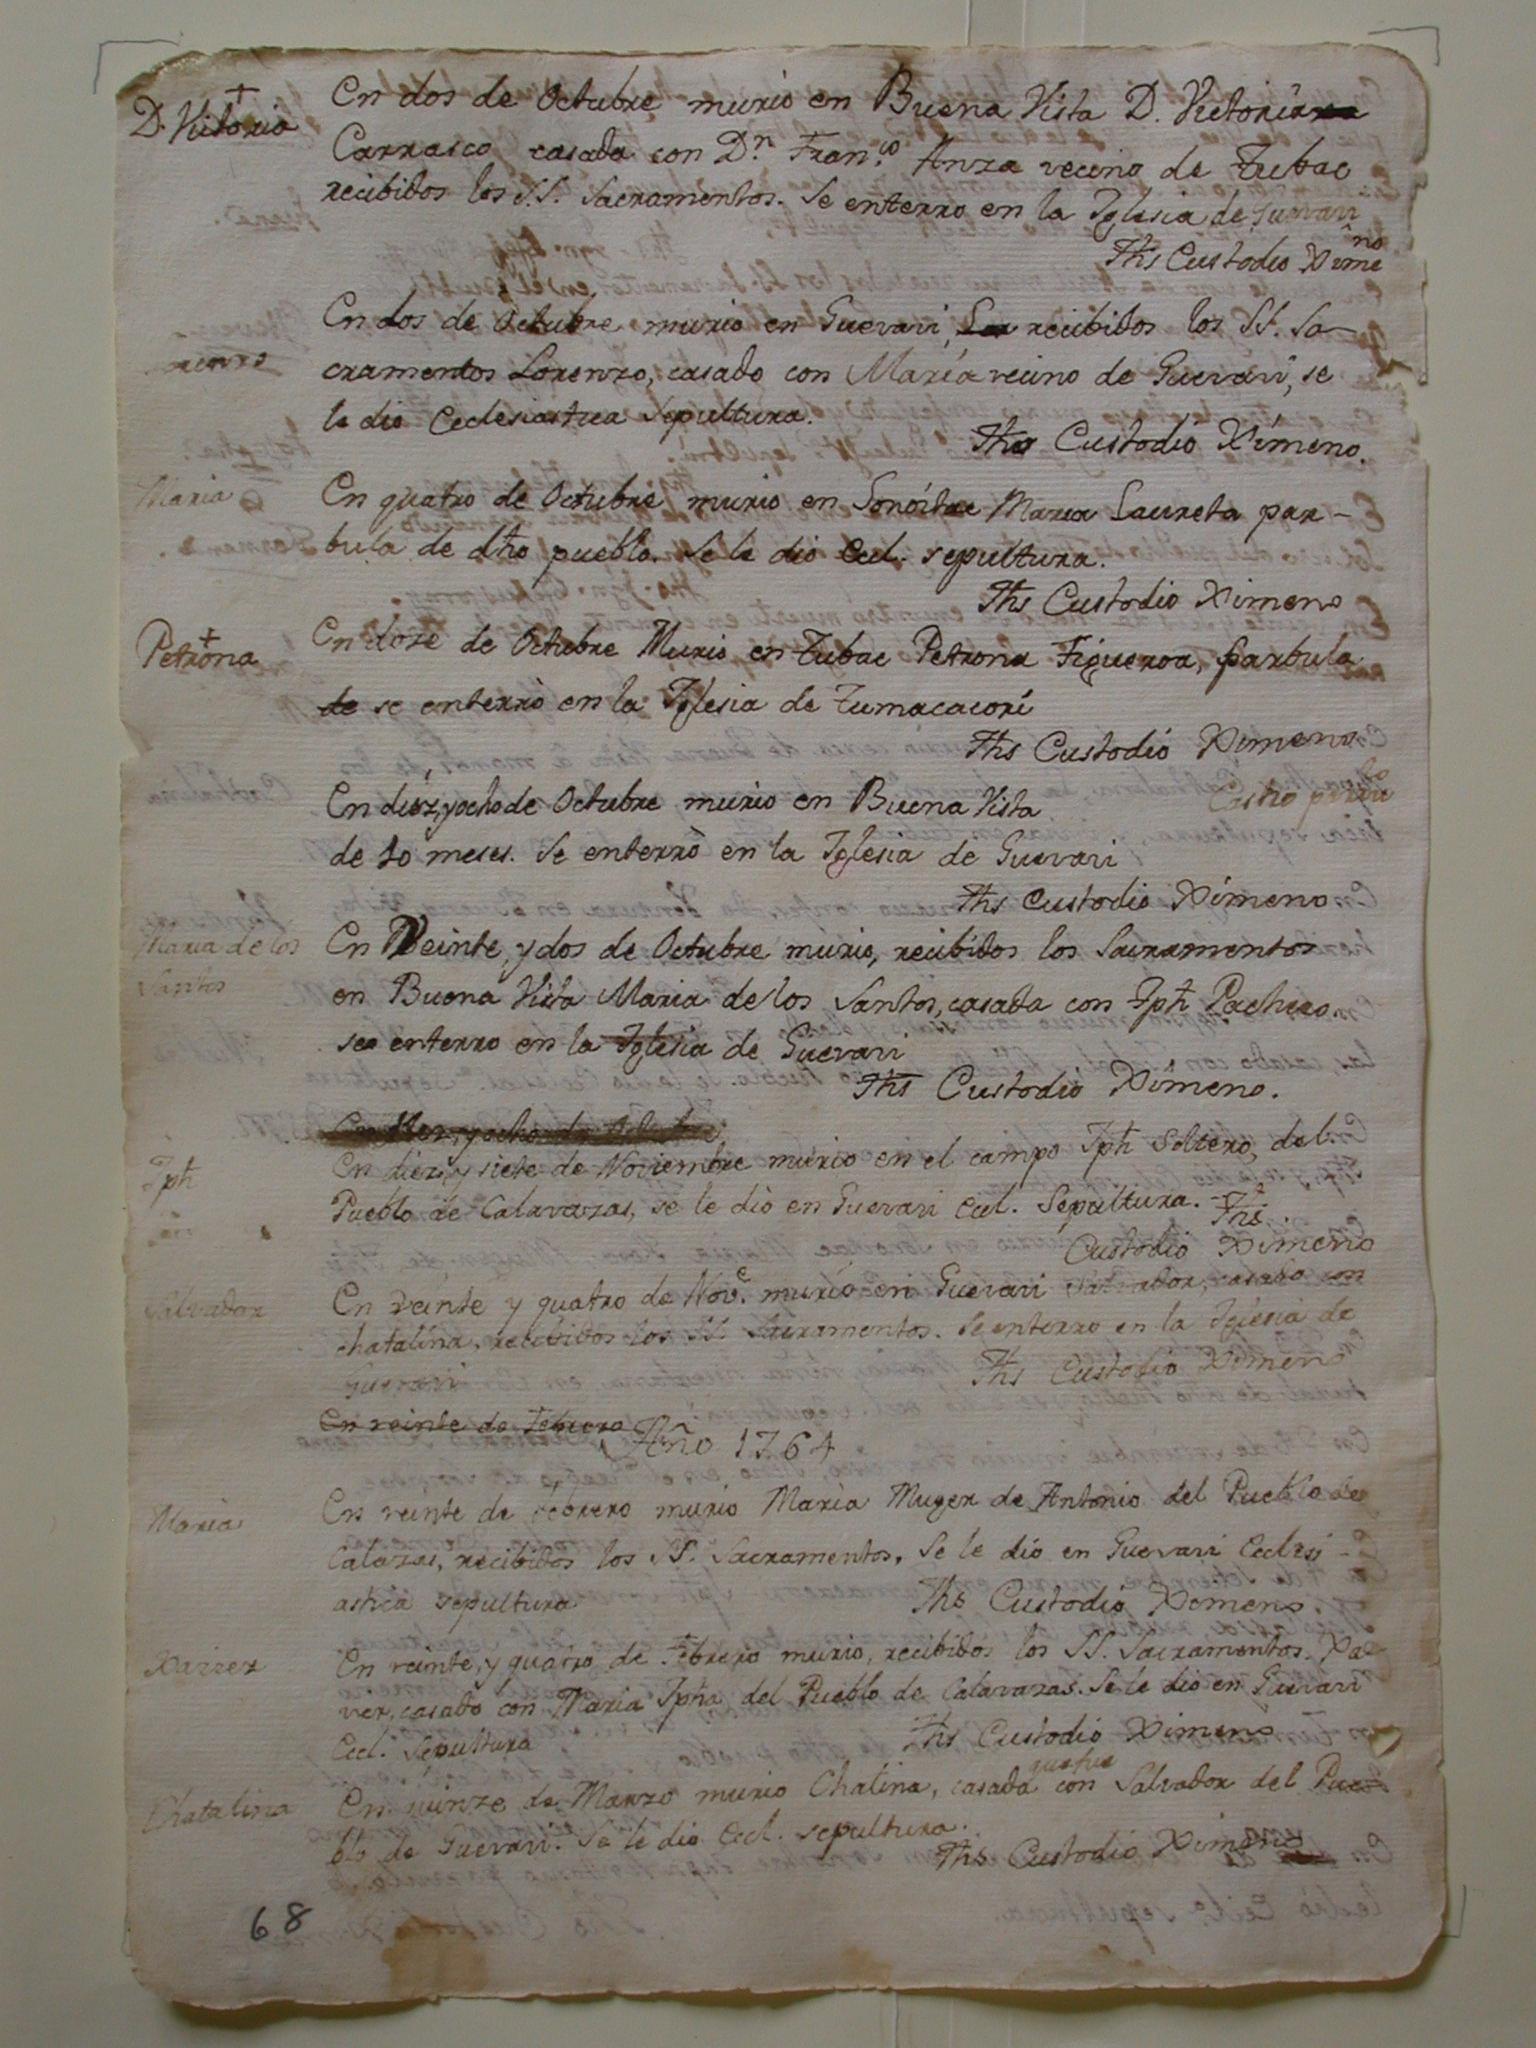 D. Victoria
En dos de Octubre murio en Buena Vista D. Victoria
Carrasco casada con Dn. Franco. Anza vecino de Tubac
recibidos los SS. Sacramentos. Se enterro en la Iglesia de Guevavi
Ths Custodio Ximeno
Lorenzo
En dos de Octubre murio en Guevavi, recibidos los SS. Sa-
cramentos Lorenzo, casado con Maria vecino de Guevavi, se
le dio Ecclesiastica Sepultura.
Ths Custodio Ximeno.
Maria
En quatro de Octubre murio en Sonoitac Maria Laureta par-
bula de dho pueblo. Se le dio Ecel. sepultura.
Ths Custodio Ximeno
Petrona
En doze de Octubre Murio en Tubac Petrona Figueroa, parbula
de se enterrò en la Iglesia de Tumacacori
Ths Custodio Ximeno
En diez, y ocho de Octubre murio en Buena Vista
de 10 meses. Se enterrò en la Iglesia de Guevavi
Ths Custodio Ximeno
Maria de los
Santos
En Veinte, y dos de Octubre murio, recibidos los Sacramentos
en Buena Vista Maria de los Santos, casada con Jph Pacheco.
se enterro en la Iglesia de Guevavi
Ths Custodio Ximeno.
En diez, y ocho de Octubre
Jph
En diez, y siete de Noviembre murio en el campo Jph Soltero, del
Pueblo de Calavazas, se le diò en Guevavi Ecel. Sepultura. - Ths
Custodio Ximeno
Salvador
En veinte y quatro de Nove. murió en Guevavi Salvador, casado con
chatalina, recibidos los SS. Sacramentos. Se enterro en la Iglesia de
Guevavi
Ths Custodio Ximeno
En veinte de Febrero
Año 1764
Maria
En veinte de Febrero murio Maria Muger de Antonio del Pueblo de
Calazas, recibidos los SS. Sacramentos. Se le dio en Guevavi Ecclesi-
astica sepultura
Ths Custodio Ximeno.
Xavier
En veinte, y quatro de Febrero murio, recibidos los SS. Sacramentos. Xa-
ver, casado con Maria Jpha del Pueblo de Calavazas. Se le dio en Guevavi
Eccl. Sepultura
Ths Custodio Ximeno
Chatalina
En quinze de Marzo murio Chalina, casada que fue con Salvador del Pue-
blo de Guevavi. Se le dio Eccl. sepultura.
Ths Custodio Ximeno
68